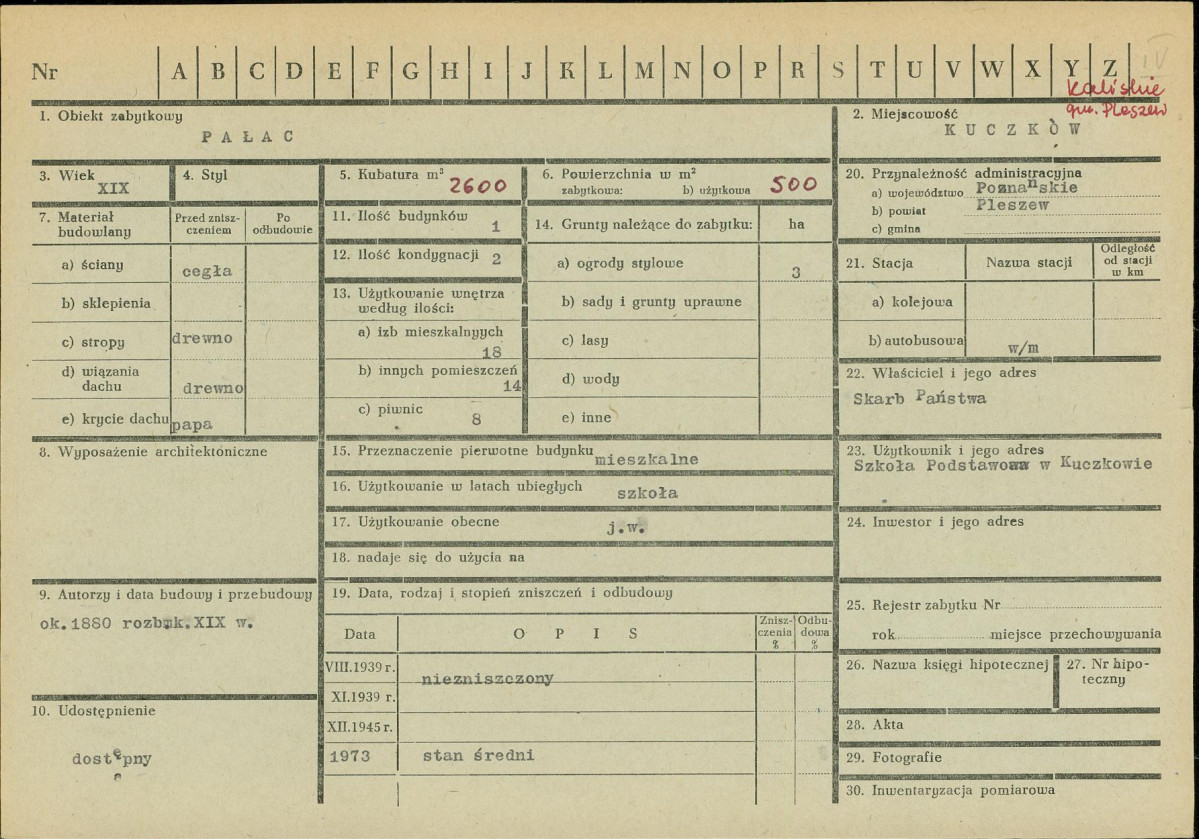 Nr A B C D E F G H I J K L M N O P R S T U V W X Y Z IV
kaliskie
gm. Pleszew
1. Obiekt zabytkowy
PAŁAC
2. Miejscowość
KUCZKÓW
3. Wiek
XIX
4. Styl
5. Kubatura m³
2600
6. Powierzchnia w m²
zabytkowa: b) użytkowa 500
20. Przynależność administracyjna
a) województwo Poznańskie
b) powiat Pleszew
c) gmina
7. Materiał budowlany
Przed zniszczeniem
Po odbudowie
a) ściany cegła
b) sklepienia
c) stropy drewno
d) wiązania dachu drewno
e) krycie dachu papa
11. Ilość budynków 1
12. Ilość kondygnacji 2
13. Użytkowanie wnętrza
według ilości:
a) izb mieszkalnyych
18
b) innych pomieszczeń
14
c) piwnic 8
14. Grunty należące do zabytku: ha
a) ogrody stylowe 3
b) sady i grunty uprawne
c) lasy
d) wody
e) inne
21. Stacja
Nazwa stacji
Odległość
od stacji
w km
a) kolejowa
b) autobusowa w/m
22. Właściciel i jego adres
Skarb Państwa
8. Wyposażenie architektoniczne
15. Przeznaczenie pierwotne budynku mieszkalne
16. Użytkowanie w latach ubiegłych szkoła
17. Użytkowanie obecne j.w.
18. nadaje się do użycia na
23. Użytkownik i jego adres
Szkoła Podstawowa w Kuczkowie
24. Inwestor i jego adres
9. Autorzy i data budowy i przebudowy
ok.1880 rozb.k.XIX w.
19. Data, rodzaj i stopień zniszczeń i odbudowy
Data
OPIS
Znisz-
czenia
%
Odbu-
dowa
%
VIII.1939 r.
niezniszczony
XI.1939 r.
XII.1945 r.
1973 stan średni
25. Rejestr zabytku Nr
rok miejsce przechowywania
26. Nazwa księgi hipotecznej
27. Nr hipo-
teczny
10. Udostępnienie
dostępny
28. Akta
29. Fotografie
30. Inwentaryzacja pomiarowa